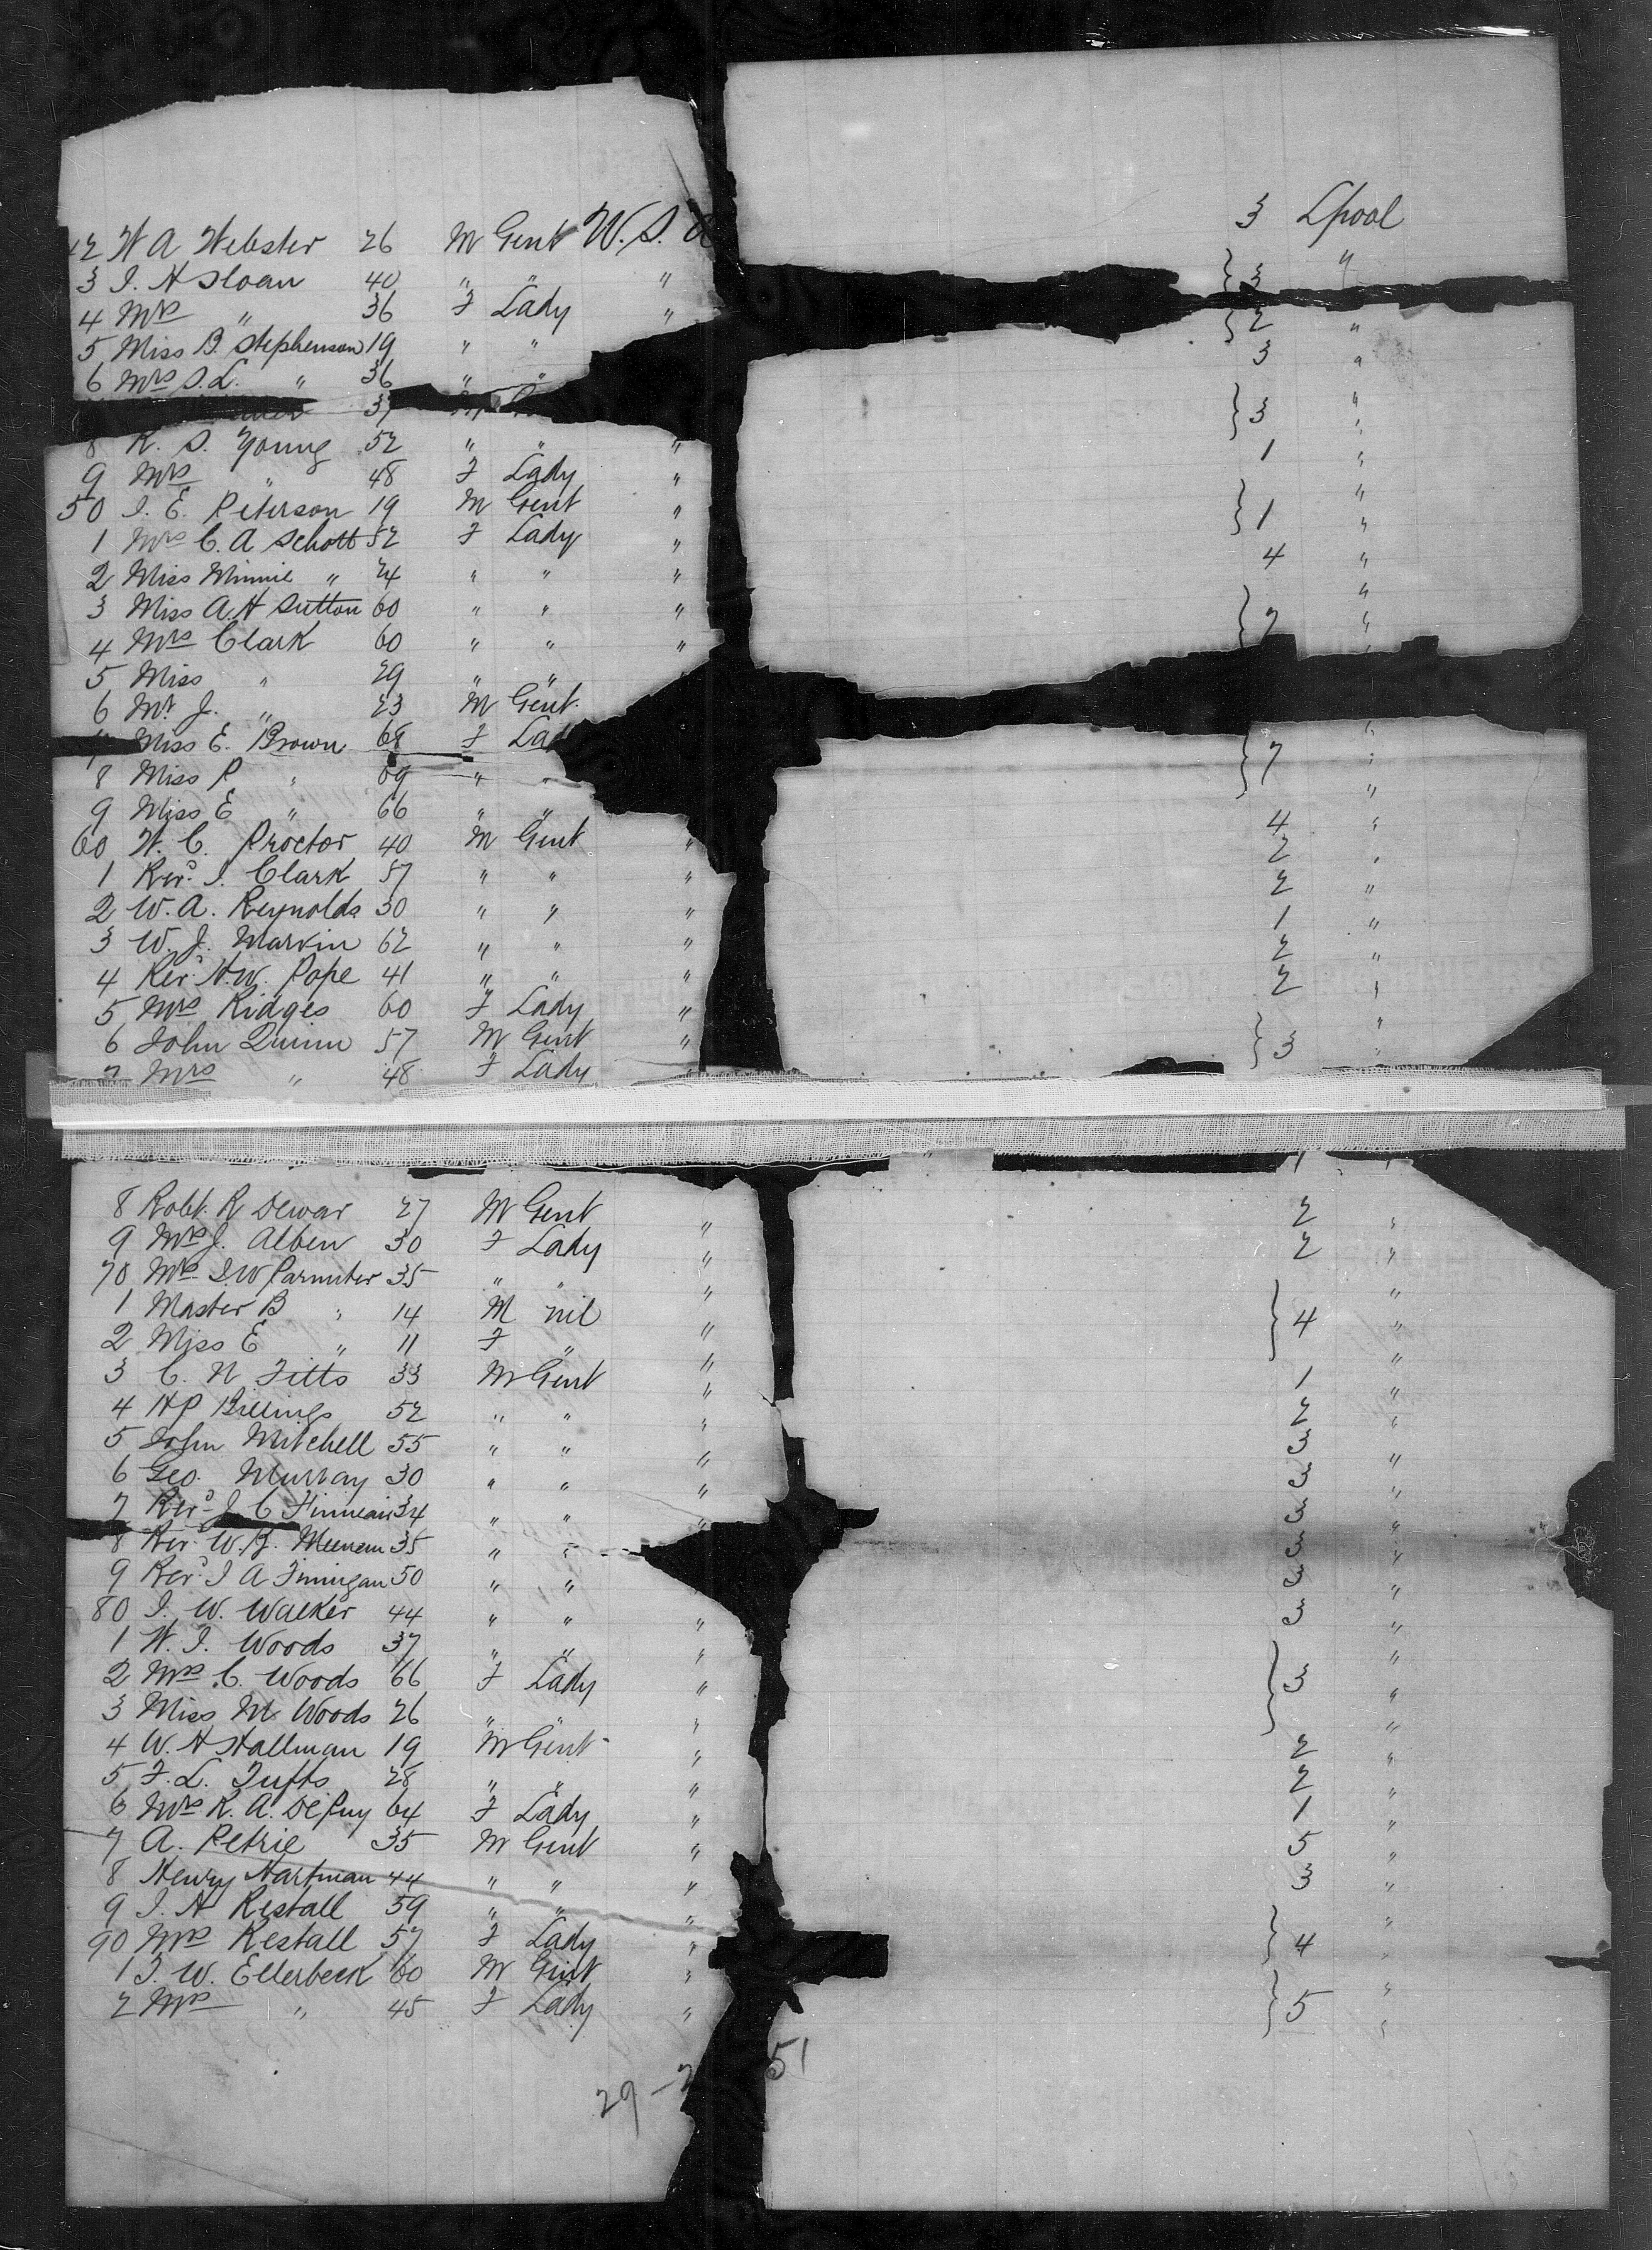 42 W A Webster 26 M Gent U.S.A 3 Lpool
3 J. H Sloan 40 " " " } 3 "
4 Mrs " 36 F Lady "
5 Miss B. Stephenson 19 " " } 2 "
6 Mrs S. L. " 36 " " 3 "
37
8 R. S. Young 52 " " " } 3 "
9 Mrs " 48 F Lady " "
50 J. E. Peterson 19 M Gent " 1 "
1 Mrs C. A Schott 52 F Lady " } 1 "
2 Miss Minnie " 24 " " " "
3 Miss A. H Sutton 60 " " " 4 "
4 Mrs Clark 60 " " " } 7 "
5 Miss " 29 " " "
6 Mr J. " 23 M Gent.
Miss E. Brown 68 F La } 7 "
8 Miss P " 69 " " "
9 Miss E " 66 " " "
60 W. C. Proctor 40 M Gent " 4 "
1 Revd. J. Clark 57 " " " 2 "
2 W. A. Reynolds 30 " " " 2 "
3 W. J. Markin 62 " " " 1 "
4 Revd. H. W. Pope 41 " " " 2 "
5 Mrs Ridges 60 F Lady " 2 "
6 John Quinn 57 M Gent " } 3 "
7 Mrs " 48 F Lady "
8 Robt. R Dewar 27 M Gent " 1 "
9 Mrs J. Alben 30 F Lady " 2 "
70 Mrs J. W Parmiter 35 " " " 2 "
1 Master B " 14 M nil " } 4 "
2 Miss E " 11 F " " "
3 C. N Fitts 33 M Gent " 1 "
4 H P Billings 52 " " " 2 "
5 John Mitchell 55 " " " 3 "
6 Geo. Murray 30 " " " 3 "
7 Revd. J. C Finnean 34 " " " 3 "
8 Rev. W. J. 35 " " 3 "
9 Revd. J A Finnigan 50 " " 3 "
80 J. W. Walker 44 " " " 3 "
1 W. J. Woods 37 " " " } 3 "
2 Mrs C. Woods 66 F Lady " "
3 Miss M. Woods 26 " " " "
4 W. H Hallman 19 M Gent " 2 "
5 F. L. Tufts 28 " " " 2 "
6 Mrs R. A. DePuy 64 F Lady " 1 "
7 A. Petrie 35 M Gent " 5 "
8 Henry Hartman 44 " " " 3 "
9 J. H Restall 59 " " " } 4 "
90 Mrs Restall 57 F Lady " "
1 J. W. Ellerbeck 60 M Gent " } 5 "
2 Mrs " 45 F Lady " "
29 - 2 51